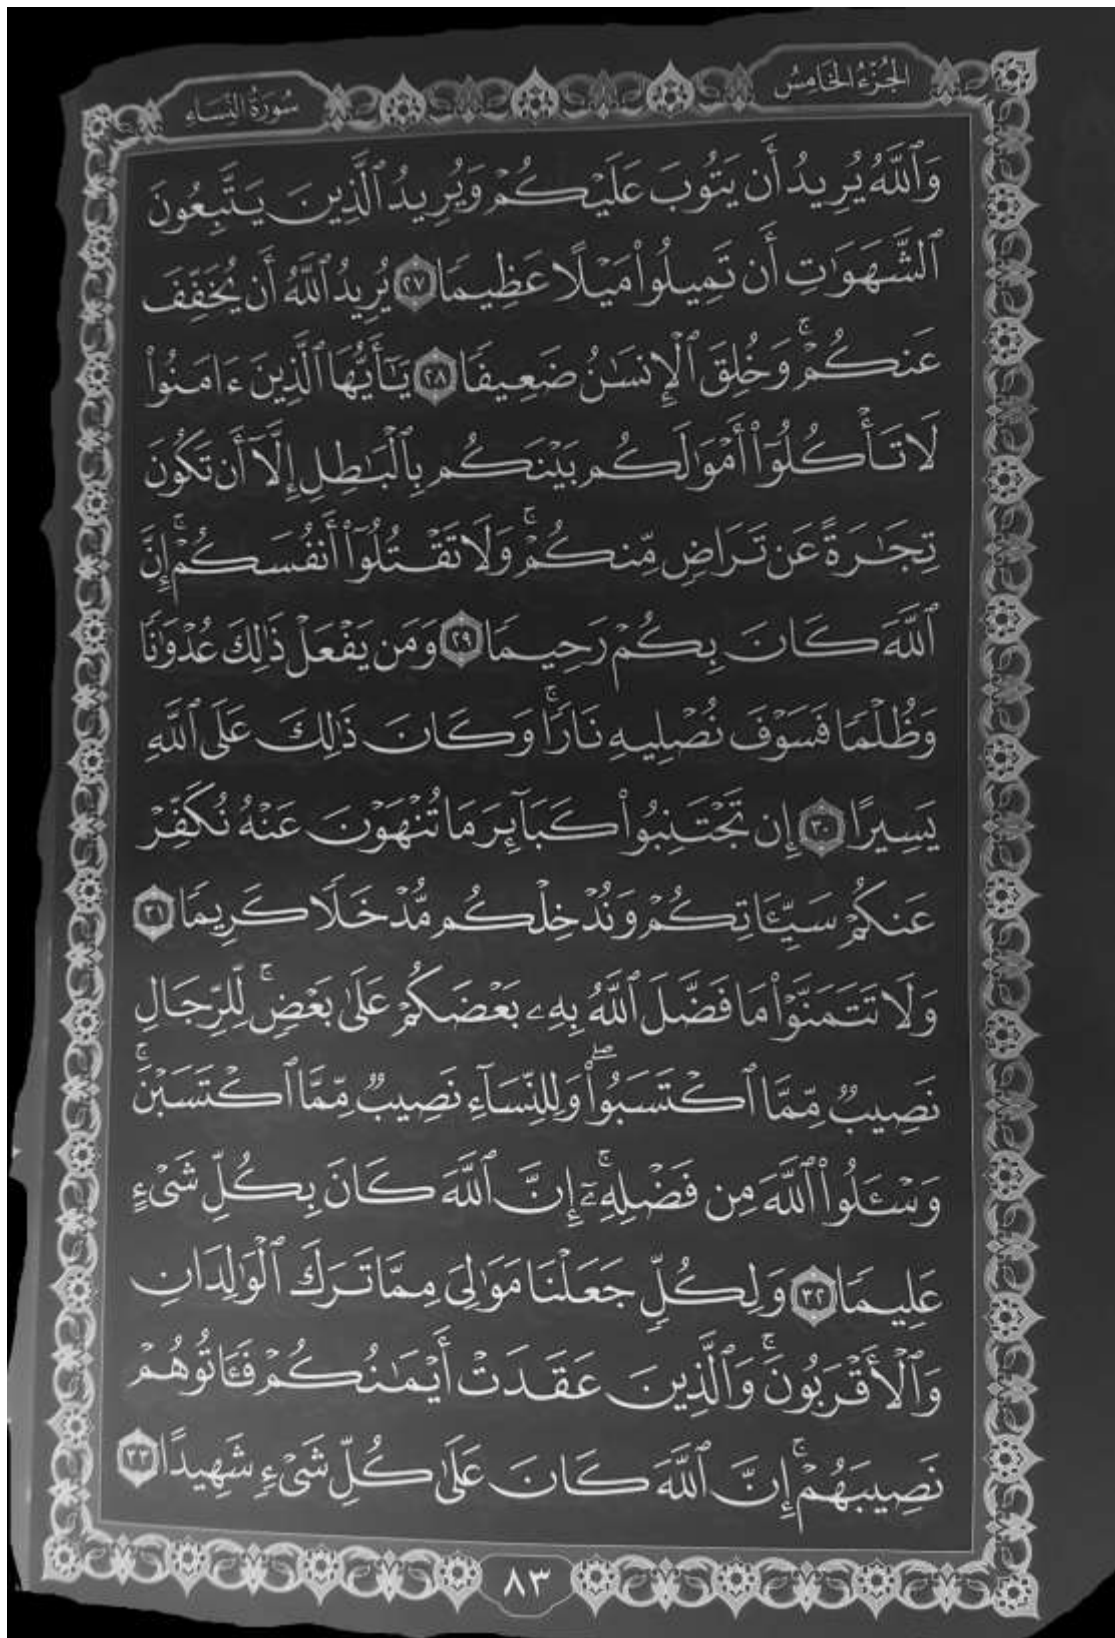 الجزء الخامس
سورة النساء
وَٱللَّهُ يُرِيدُ أَن يَتُوبَ عَلَيۡكُمۡ وَيُرِيدُ ٱلَّذِينَ يَتَّبِعُونَ
ٱلشَّهَوَٰتِ أَن تَمِيلُواْ مَيۡلًا عَظِيمٗا ٢٧ يُرِيدُ ٱللَّهُ أَن يُخَفِّفَ
عَنكُمۡۚ وَخُلِقَ ٱلۡإِنسَٰنُ ضَعِيفٗا ٢٨ يَٰٓأَيُّهَا ٱلَّذِينَ ءَامَنُواْ
لَا تَأۡكُلُوٓاْ أَمۡوَٰلَكُم بَيۡنَكُم بِٱلۡبَٰطِلِ إِلَّآ أَن تَكُونَ
تِجَٰرَةً عَن تَرَاضٖ مِّنكُمۡۚ وَلَا تَقۡتُلُوٓاْ أَنفُسَكُمۡۚ إِنَّ
ٱللَّهَ كَانَ بِكُمۡ رَحِيمٗا ٢٩ وَمَن يَفۡعَلۡ ذَٰلِكَ عُدۡوَٰنٗا
وَظُلۡمٗا فَسَوۡفَ نُصۡلِيهِ نَارٗاۚ وَكَانَ ذَٰلِكَ عَلَى ٱللَّهِ
يَسِيرًا ٣٠ إِن تَجۡتَنِبُواْ كَبَآئِرَ مَا تُنۡهَوۡنَ عَنۡهُ نُكَفِّرۡ
عَنكُمۡ سَيِّـَٔاتِكُمۡ وَنُدۡخِلۡكُم مُّدۡخَلٗا كَرِيمٗا ٣١
وَلَا تَتَمَنَّوۡاْ مَا فَضَّلَ ٱللَّهُ بِهِۦ بَعۡضَكُمۡ عَلَىٰ بَعۡضٖۚ لِّلرِّجَالِ
نَصِيبٞ مِّمَّا ٱكۡتَسَبُواْۖ وَلِلنِّسَآءِ نَصِيبٞ مِّمَّا ٱكۡتَسَبۡنَۚ
وَسۡـَٔلُواْ ٱللَّهَ مِن فَضۡلِهِۦٓۚ إِنَّ ٱللَّهَ كَانَ بِكُلِّ شَيۡءٍ
عَلِيمٗا ٣٢ وَلِكُلّٖ جَعَلۡنَا مَوَٰلِيَ مِمَّا تَرَكَ ٱلۡوَٰلِدَانِ
وَٱلۡأَقۡرَبُونَۚ وَٱلَّذِينَ عَقَدَتۡ أَيۡمَٰنُكُمۡ فَـَٔاتُوهُمۡ
نَصِيبَهُمۡۚ إِنَّ ٱللَّهَ كَانَ عَلَىٰ كُلِّ شَيۡءٖ شَهِيدًا ٣٣
٨٣